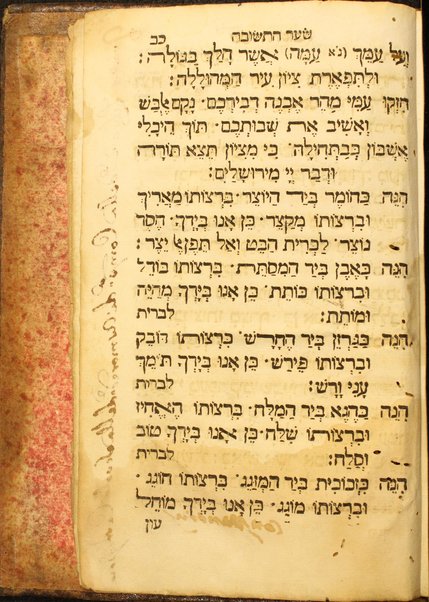 שער התשובה כב
ועל עמך (נ׳׳א עמה) אשר הלך בגולה:
ולתפארת ציון עיר המהוללה:
חזקו עמי מהר אבנה דבירכם · נקם אלבש
ואשיב את שבותכם · תוך היכלי
אשכון כבתחילה · כי מציון תצא תורה
ודבר יי מירושלים:
הנה כחומר ביד היוצר · ברצותו מאריך
וברצותו מקצר · כן אנו בידך · חסד
נוצר · לברית הבט ואל תפן ליצר:
הנה כאבן ביד המסתת · ברצותו בודל
וברצותו כותת · כן אנו בידך מחיה
וממתת: לברית
הנה כגרזן ביד החרש · ברצותו דובק
וברצותו פירש · כן אנו בידך תמך
עני ורש: לברית
הנה כהגא ביד המלח · ברצותו האחיז
וברצותו שלח · כן אנו בידך טוב
וסלח: לברית
הנה כזכוכית ביד המזגג · ברצותו חוגג ·
וברצותו מוגג · כן אנו בידך מוחל
עון